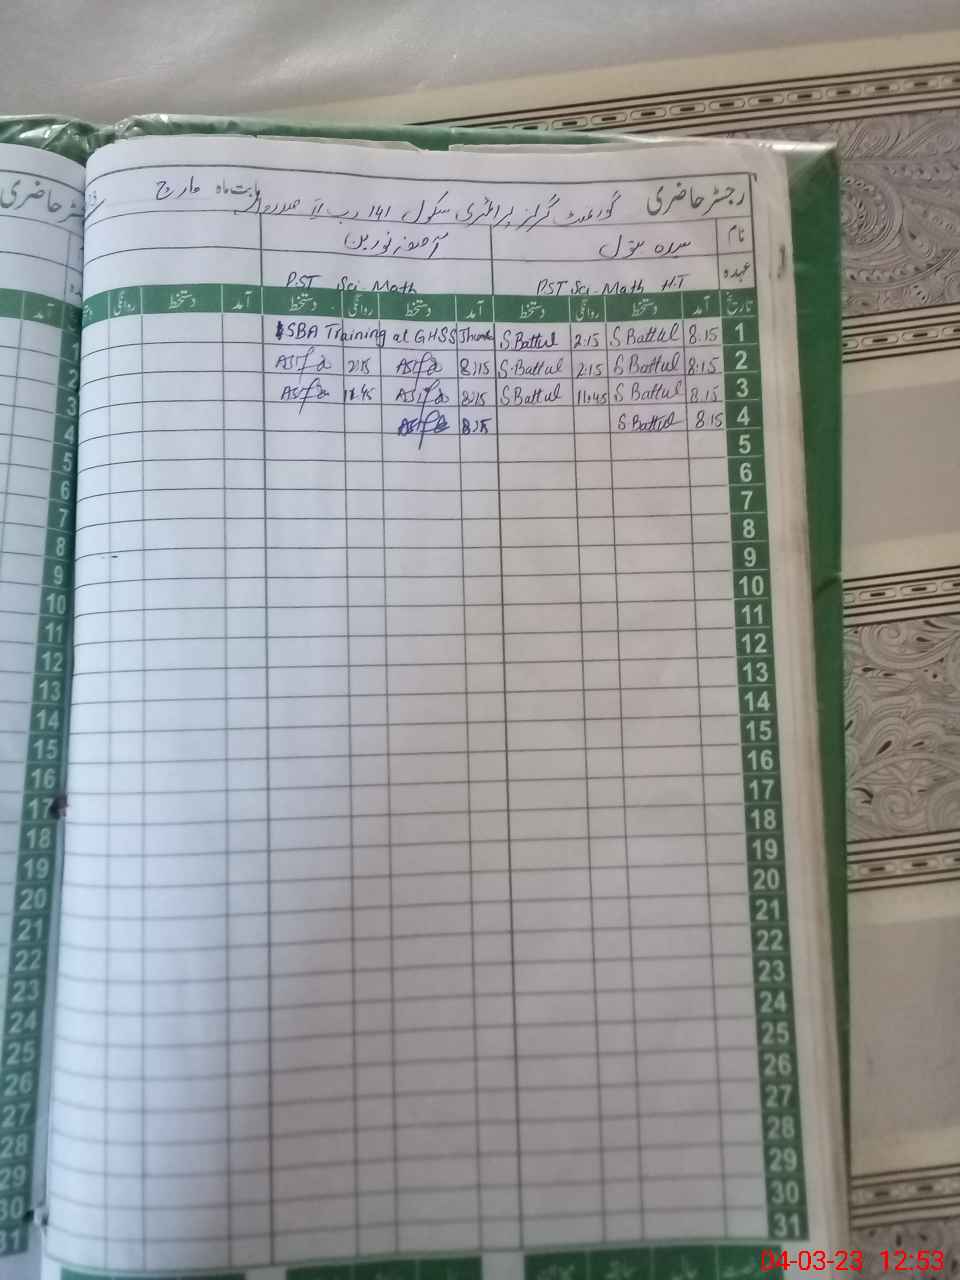 رجسٹر حاضری گورنمنٹ گرلز پرائمری سکول 141 رب بابت ماہ مارچ
نام سیدہ بتول آصفہ نورین
عہدہ PST Sci-Math H.T PST Sci-Math
تاریخ آمد دستخط روانگی دستخط آمد دستخط روانگی دستخط آمد دستخط روانگی
1 8:15 S Battul 2:15 S Battul SBA Training at GHSS
2 8:15 S Battul 2:15 S.Battul 8:15 Asifa 2:15 Asifa
3 8:15 S Battul 11:45 S Battul 8:15 Asifa 11:45 Asifa
4 8:15 S.Battul 8:15 Asifa
5
6
7
8
9
10
11
12
13
14
15
16
17
18
19
20
21
22
23
24
25
26
27
28
29
30
31
حاضری
آمد
1
2
3
4
5
6
7
8
9
10
11
12
13
14
15
16
17
18
19
20
21
22
23
24
25
26
27
28
29
30
31
04-03-23 12:53